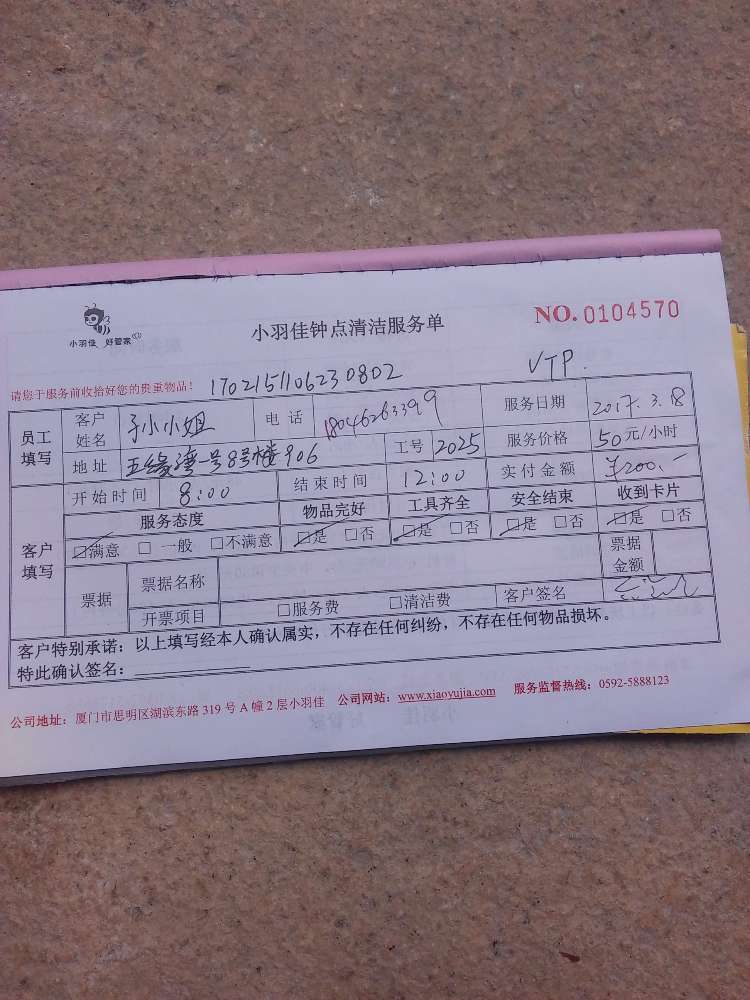 小羽佳 好管家
小羽佳钟点清洁服务单
NO. 0104570
请您于服务前收拾好您的贵重物品！ 1702151106230802 VIP
员工填写 客户姓名 孙小小姐 电话 18046263399 服务日期 2017.3.18
地址 五缘湾一号8号楼906 工号 2025 服务价格 50元/小时
客户填写 开始时间 8:00 结束时间 12:00 实付金额 ¥200.-
服务态度 物品完好 工具齐全 安全结束 收到卡片
☑满意 □ 一般 □不满意 ☑是 □否 ☑是 □否 ☑是 □否 ☑是 □否
票据 票据名称 票据金额
开票项目 □服务费 □清洁费 客户签名
客户特别承诺：以上填写经本人确认属实，不存在任何纠纷，不存在任何物品损坏。
特此确认签名：
公司地址：厦门市思明区湖滨东路 319 号 A 幢 2 层小羽佳 公司网站：www.xiaoyujia.com 服务监督热线：0592-5888123